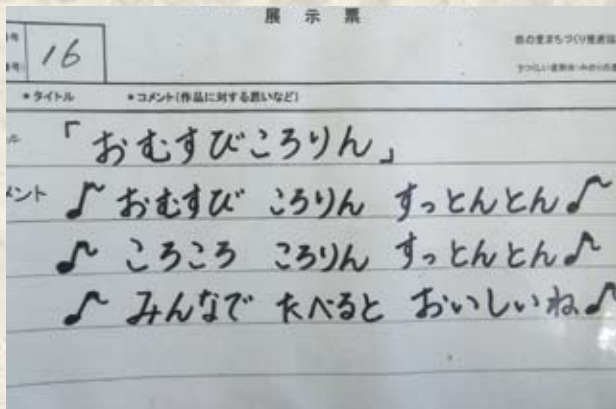 展示票
号
16
番号
*タイトル *コメント(作品に対する思いなど)
ル 「おむすびころりん」
メント ♪ おむすび ころりん すっとんとん♪
♪ ころころ ころりん すっとんとん♪
♪ みんなで たべると おいしいね♪